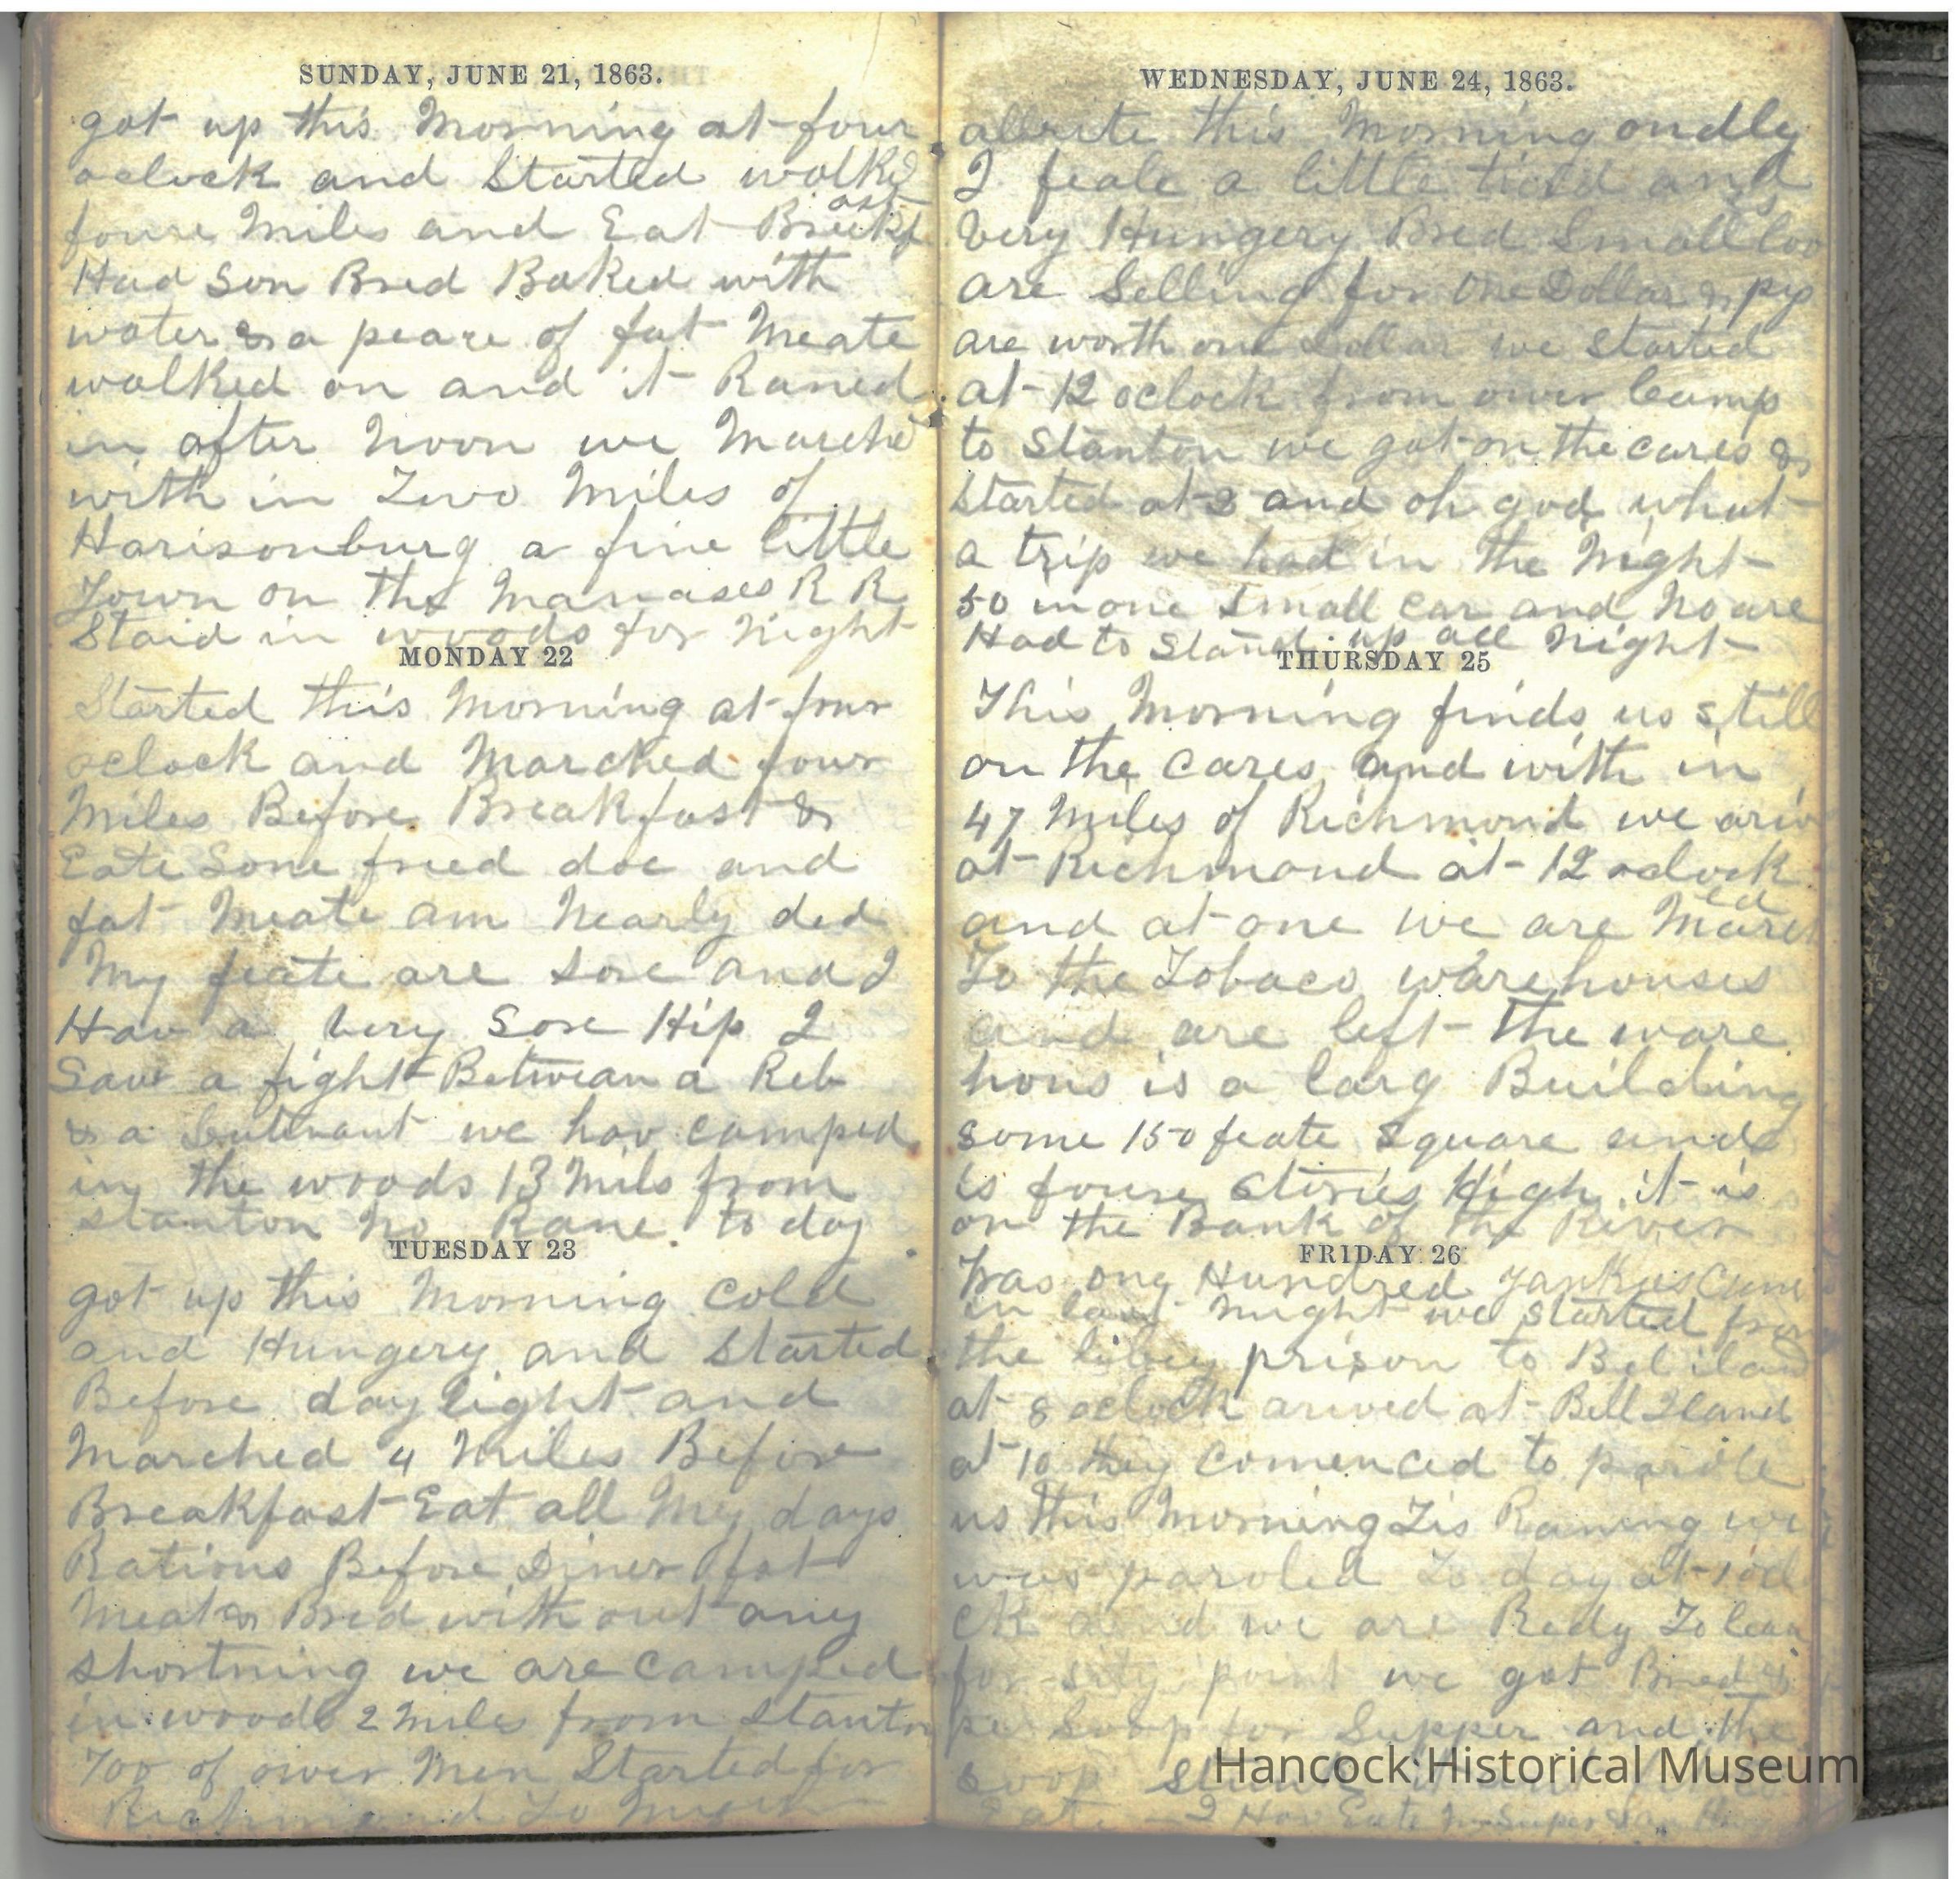 SUNDAY, JUNE 21, 1863.
got up this Morning at four
oclock and Started walked
foure Miles and Eat Breckfast
Had Son Bred Baked with
water & a peare of fat Meate
walked on and it Raned
in after Noon we Marche
with in Two Miles of
Harisonburg a fine little
Town on the Manases R R
Staid in woods for Night
MONDAY 22
Started this Morning at four
oclock and Marched four
Miles Before Breakfast &
Eate Sone fried doe and
fat Meate am Nearly ded
My feate are sore and I
Hav a very Sore Hip I
Saw a fight Betwean a Reb
& a Leutenant we hav camped
in the woods 13 Mils from
stanton No Rane to day
TUESDAY 23
got up this Morning Cold
and Hungery and Started
Before day light and
Marched 4 Miles Before
Breakfast Eat all My days
Rations Before Diner fat
Meat & Bred with out any
shortning we are camped
in woods 2 Miles from Stanton
700 of ower Men Started for
Richmond To
WEDNESDAY, JUNE 24, 1863.
allrite this Morning ondly
I feale a little tierd and
Very Hungery Bred Small loo
are Selling for One Dollar & pys
are worth one Dollar we Started
at 12 oclock from ower Camp
to Stanton we got on the cares &
Started at 2 and oh god what
a trip we had in the Night
50 in one Small Car and No are
Had to Stand up all Night
THURSDAY 25
This Morning finds us still
on the cares and with in
47 Miles of Richmond we ariv
at Richmond at 12 oclock
and at one we are Marched
To the Tobaco warehouses
and are left the ware
hous is a larg Building
some 150 feate Square and
is foure Stories High it is
on the Bank of the River
FRIDAY 26
Was one Hundred Yankies Came
in last Night we Started from
the libey prison to Bel iland
at 8 oclock arived at Bell Iland
at 10 they comenced to parole
us this Morning Tis Raning we
was paroled To day at 10 cl
ck and we are Redy To leav
for sity point we got Bred &
pe Soop for Supper and the
Soop
Eate I Hav Eate No Super
Hancock Historical Museum